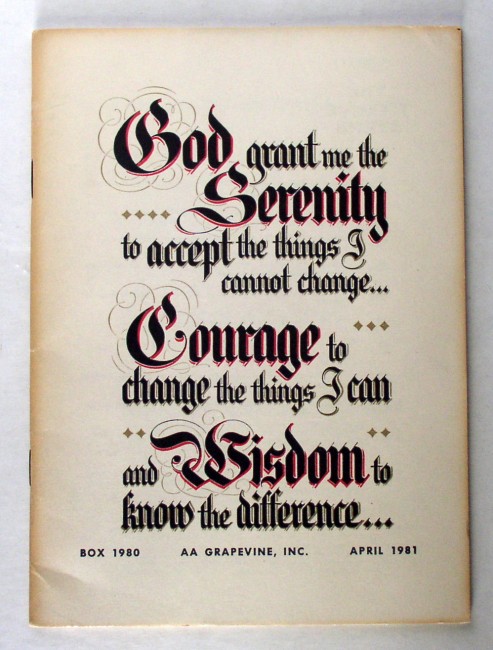 God grant me the
Serenity
to accept the things I
cannot change...
Courage to
change the things I can
and Wisdom to
know the difference...
BOX 1980 AA GRAPEVINE, INC. APRIL 1981